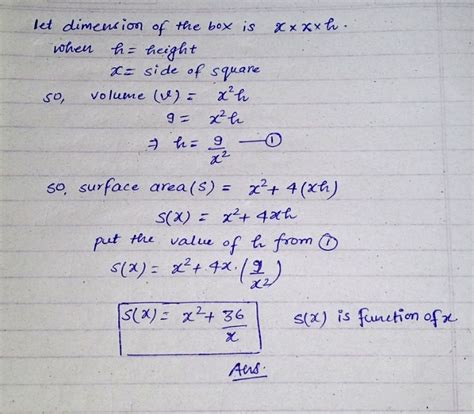 let dimension of the box is x × x × h.
when h = height
x = side of square
so, volume (v) = x²h
9 = x²h
⇒ h = 9/x² —①
so, surface area (s) = x² + 4(xh)
s(x) = x² + 4xh
put the value of h from ①
s(x) = x² + 4x·(9/x²)
s(x) = x² + 36/x s(x) is function of x
Ans.